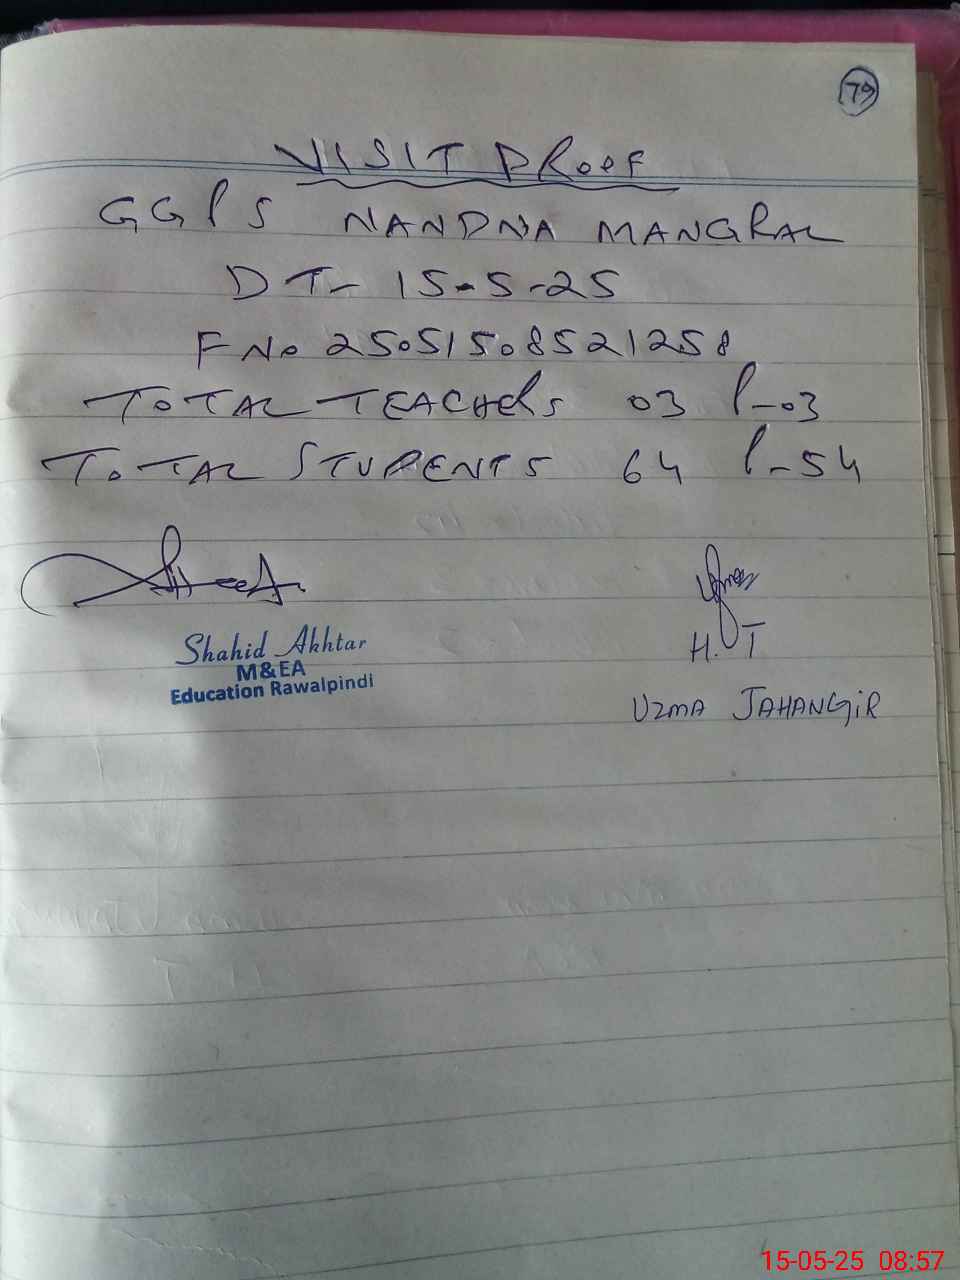 79
VISIT PROOF
GGPS NANDNA MANGRAL
DT- 15-5-25
F No 25051508521258
TOTAL TEACHERS 03 P-03
TOTAL STUDENTS 64 P-54
Shahid Akhtar
M&EA
Education Rawalpindi
H.T
UZMA JAHANGIR
15-05-25 08:57